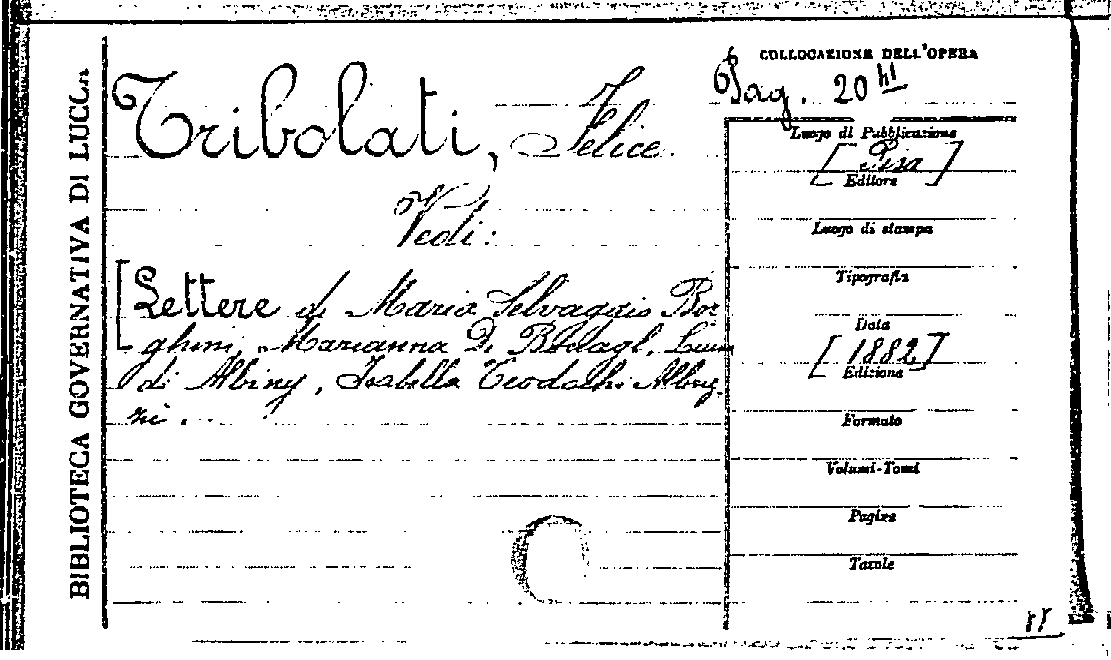 BIBLIOTECA GOVERNATIVA DI LUCCA
COLLOCAZIONE DELL'OPERA
Pag. 20
Tribolati, Felice.
Vedi:
[Lettere di Maria Selvaggia Bor
ghini, Marianna D.
di Albiny, Isabella Teodochi Albriz
zi.
Luogo di Pubblicazione
[Pisa]
Editore
Luogo di stampa
Tipografia
Data
[1882]
Edizione
Formato
Volumi-Tomi
Pagine
Tavole